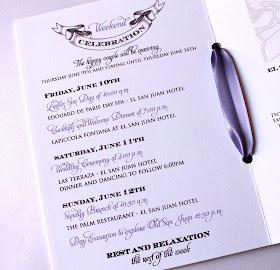 Weekend
CELEBRATION
The happy couple will be arriving
THURSDAY JUNE 9TH AND STAYING UNTIL THURSDAY JUNE 16TH
FRIDAY, JUNE 10TH
Ladies Spa Day at 10:00 a.m.
EDOUARD DE PARIS DAY SPA - EL SAN JUAN HOTEL
Cocktails and Welcome Dinner at 7:00 p.m.
LAPICCOLA FONTANA AT EL SAN JUAN HOTEL
SATURDAY, JUNE 11TH
Wedding Ceremony at 4:00 p.m.
LAS TERRAZA - EL SAN JUAN HOTEL
DINNER AND DANCING TO FOLLOW 6:00PM
SUNDAY, JUNE 12TH
Sunday Brunch at 10:30 a.m.
THE PALM RESTAURANT - EL SAN JUAN HOTEL
Day Excursion to explore Old San Juan 12:30 p.m.
REST AND RELAXATION
the rest of the week
EL